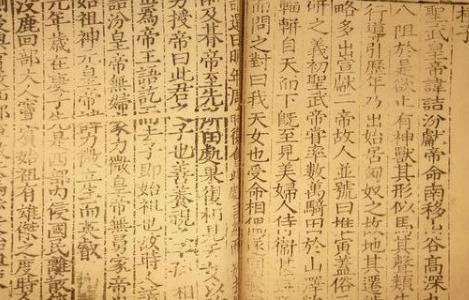 聖武皇帝諱詰汾獻帝命南移山谷高深
八阻於是欲止有神獸其形似馬其聲類
行導引歷年乃出始居匈奴之故地其遷
略多出宣獻二帝故人並號曰推寅蓋俗
研之義初聖武帝嘗率數萬騎田於山澤
輜軿自天而下既至見美婦人侍衛甚
而問之對曰我天女也受命相
請還曰明年周時復
及期帝至先所田處果復相見天女以
男授帝曰此君之子也善養視之子孫相
世為帝王語訖而去子即始祖也故時人諺
詰汾皇帝無婦家力微皇帝無舅家帝
始祖神元皇帝諱力微立生而英叡
元年歲在庚子先是西部內侵國民離散
沒鹿回部大人竇賓始祖有雄傑之度時